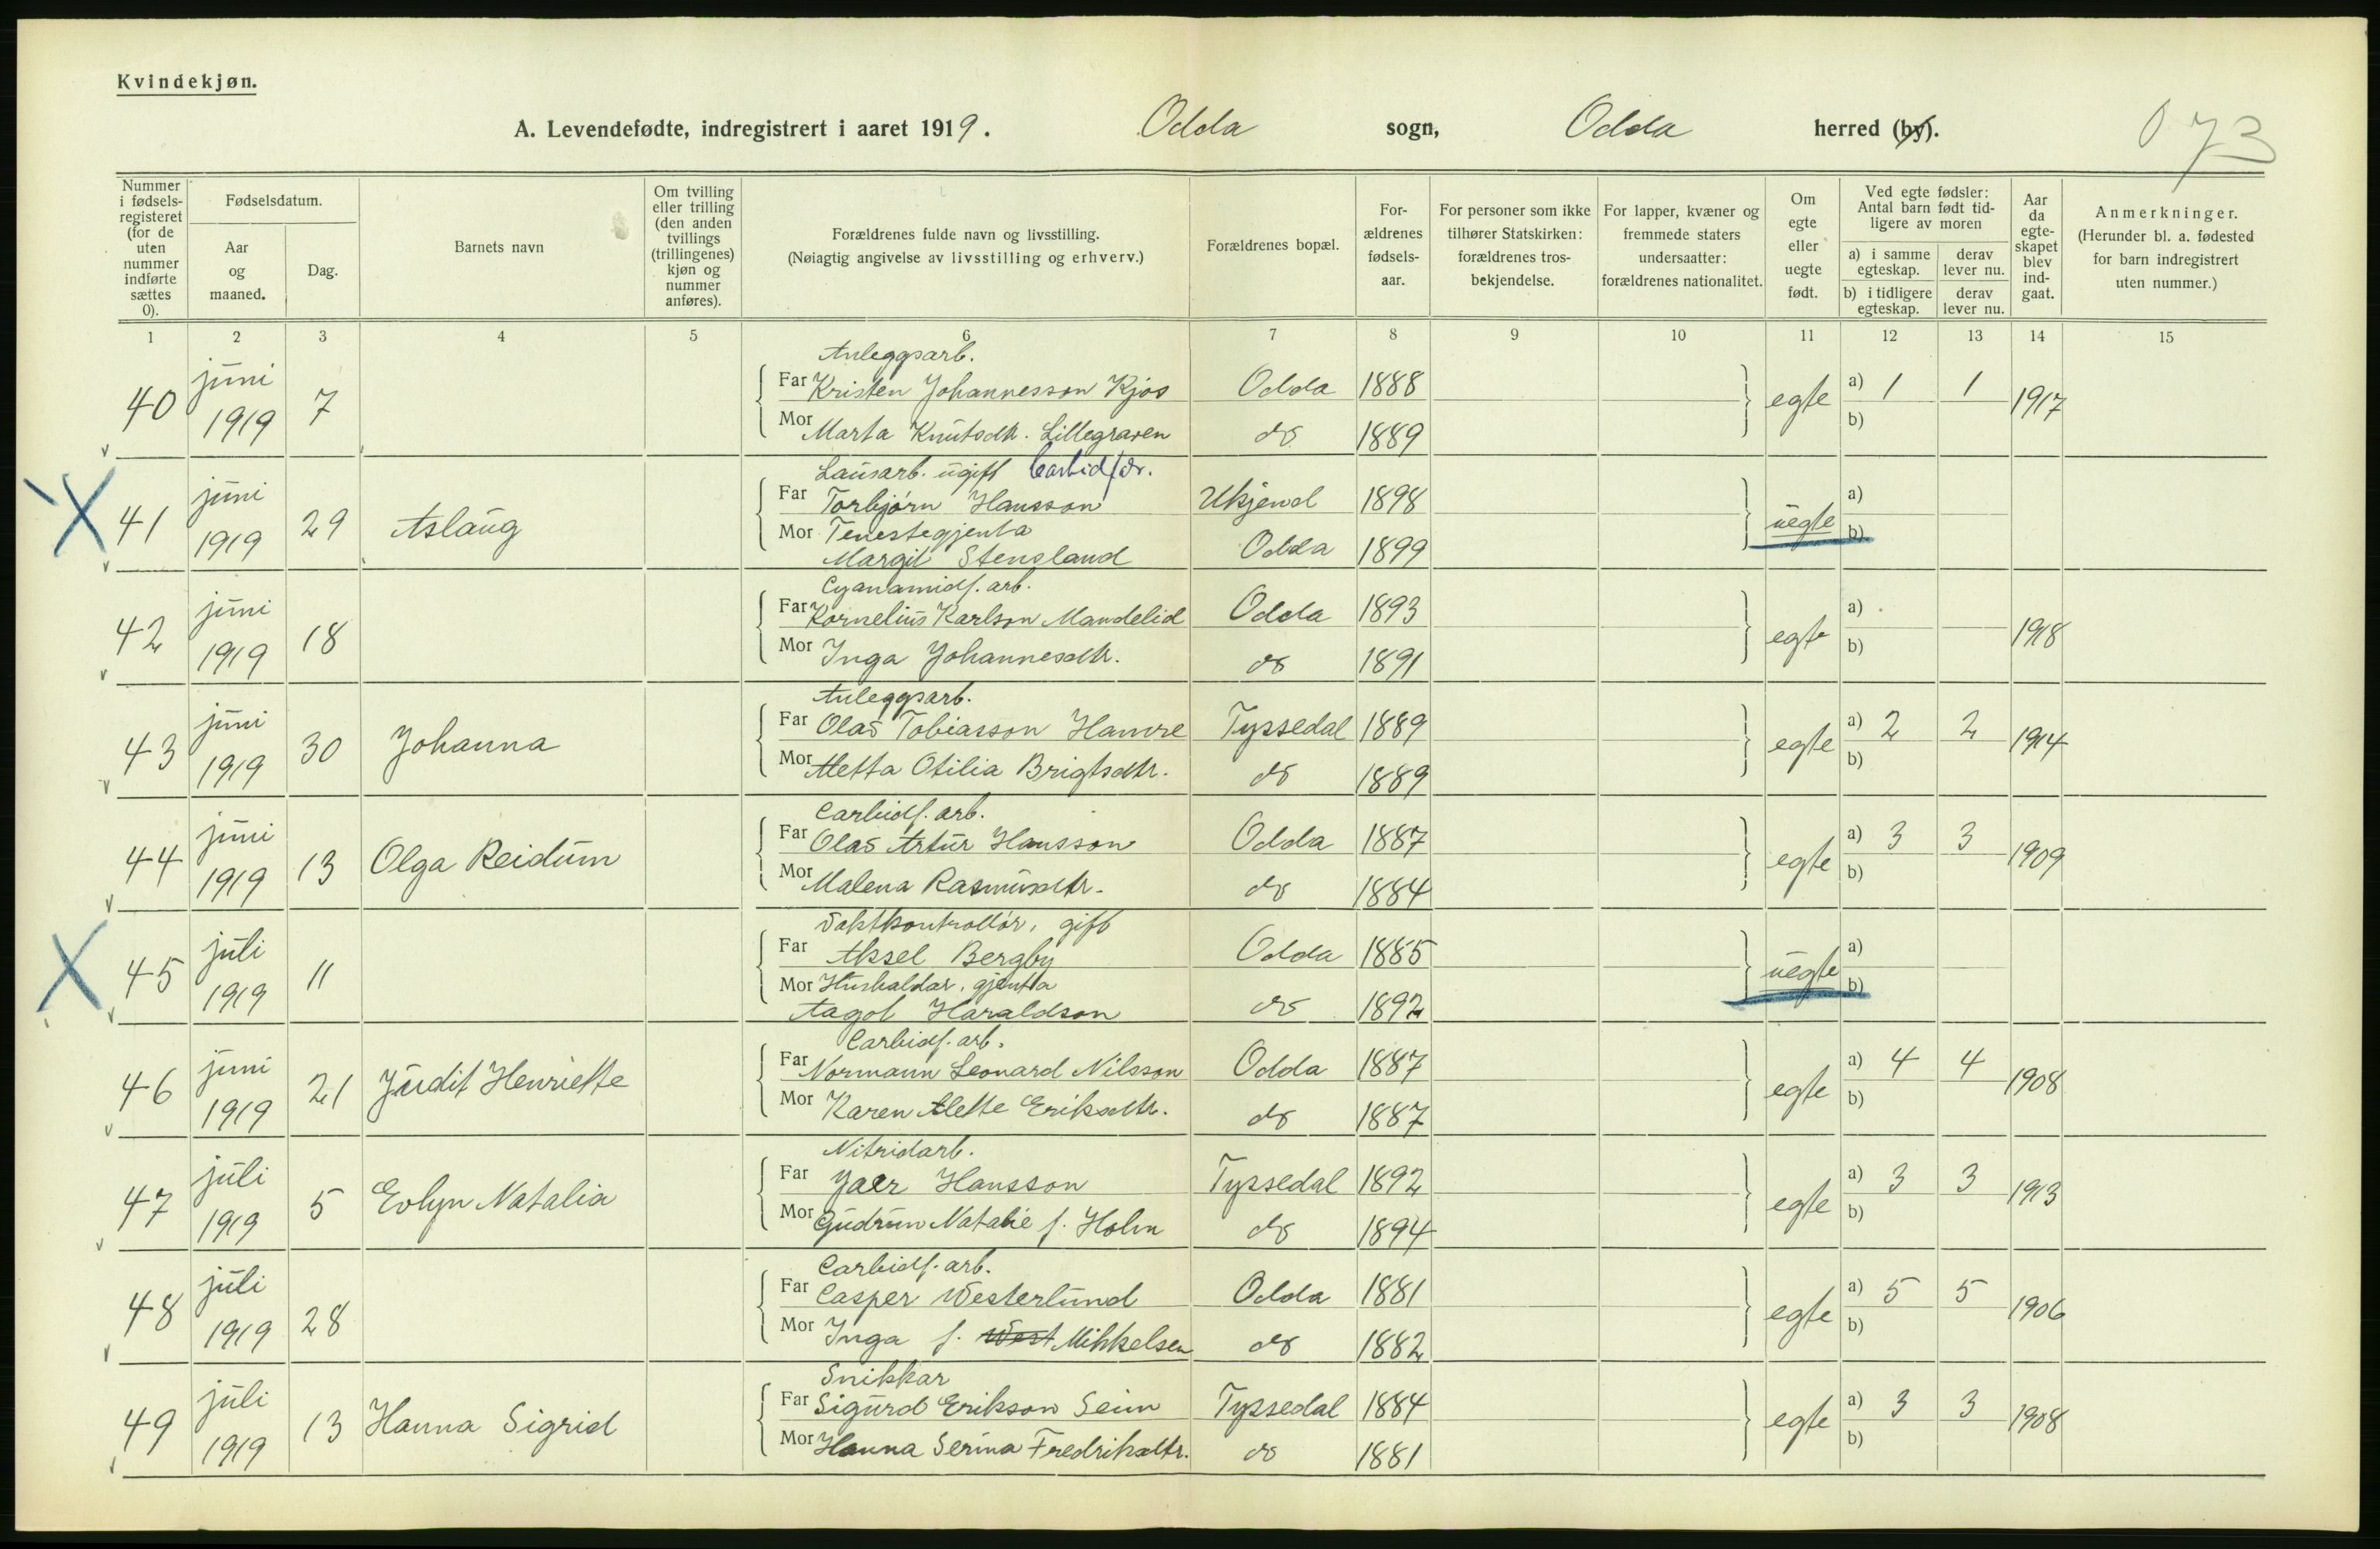 Kvindekjøn.
A. Levendefødte, indregistrert i aaret 1919. Odda sogn, Odda herred (by).
073
Nummer i fødsels-registeret (for de uten nummer indførte sættes 0).
Fødselsdatum.
Aar og maaned.
Dag.
Barnets navn
Om tvilling eller trilling (den anden tvillings (trillingenes) kjøn og nummer anføres).
Forældrenes fulde navn og livsstilling.
(Nøiagtig angivelse av livsstilling og erhverv.)
Forældrenes bopæl.
For-ældrenes fødsels-aar.
For personer som ikke tilhører Statskirken: forældrenes tros-bekjendelse.
For lapper, kvæner og fremmede staters undersaatter: forældrenes nationalitet.
Om egte eller uegte født.
Ved egte fødsler: Antal barn født tid-ligere av moren
a) i samme egteskap. derav lever nu.
b) i tidligere egteskap. derav lever nu.
Aar da egte-skapet blev ind-gaat.
Anmerkninger.
(Herunder bl. a. fødested for barn indregistrert uten nummer.)
1 2 3 4 5 6 7 8 9 10 11 12 13 14 15
Anleggsarb.
40 juni 1919 7 Far Kristen Johannesson Kjos Odda 1888 egte a) 1 1 1917
Mor Marta Knutsdtr. Lillegraven do 1889 b)
Lausarb. ugift Carbidf dr.
41 juni 1919 29 Aslaug Far Torbjørn Hansson Ukjend 1898 uegte a)
Mor Tenestegjenta
Margit Stensland Odda 1899 b)
Cyanamidf. arb.
42 juni 1919 18 Far Kornelius Karlson Mandelid Odda 1893 egte a) 1918
Mor Inga Johannesdtr. do 1891 b)
Anleggsarb.
43 juni 1919 30 Johanna Far Olas Tobiasson Hamre Tyssedal 1889 egte a) 2 2 1914
Mor Metta Otilia Brigtsdtr. do 1889 b)
Carbidf. arb.
44 juni 1919 13 Olga Reidum Far Olas Artur Hansson Odda 1887 egte a) 3 3 1909
Mor Malena Rasmusdtr. do 1884 b)
Vaktkontrollør, gift
45 juli 1919 11 Far Aksel Bergby Odda 1885 uegte a)
Mor Hushaldar, gjenta
Aagot Haraldson do 1892 b)
Carbidf. arb.
46 juni 1919 21 Judit Henriette Far Normann Leonard Nilsson Odda 1887 egte a) 4 4 1908
Mor Karen Alette Eriksdtr. do 1887 b)
Nitridarb.
47 juli 1919 5 Evlyn Natalia Far Jaer Hansson Tyssedal 1892 egte a) 3 3 1913
Mor Gudrun Natalie f. Holm do 1894 b)
Carbidf. arb.
48 juli 1919 28 Far Casper Westerlund Odda 1881 egte a) 5 5 1906
Mor Inga f. West Mikkelsen do 1882 b)
Snikkar
49 juli 1919 13 Hanna Sigrid Far Sigurd Erikson Seim Tyssedal 1884 egte a) 3 3 1908
Mor Hanna Serina Fredriksdtr. do 1881 b)